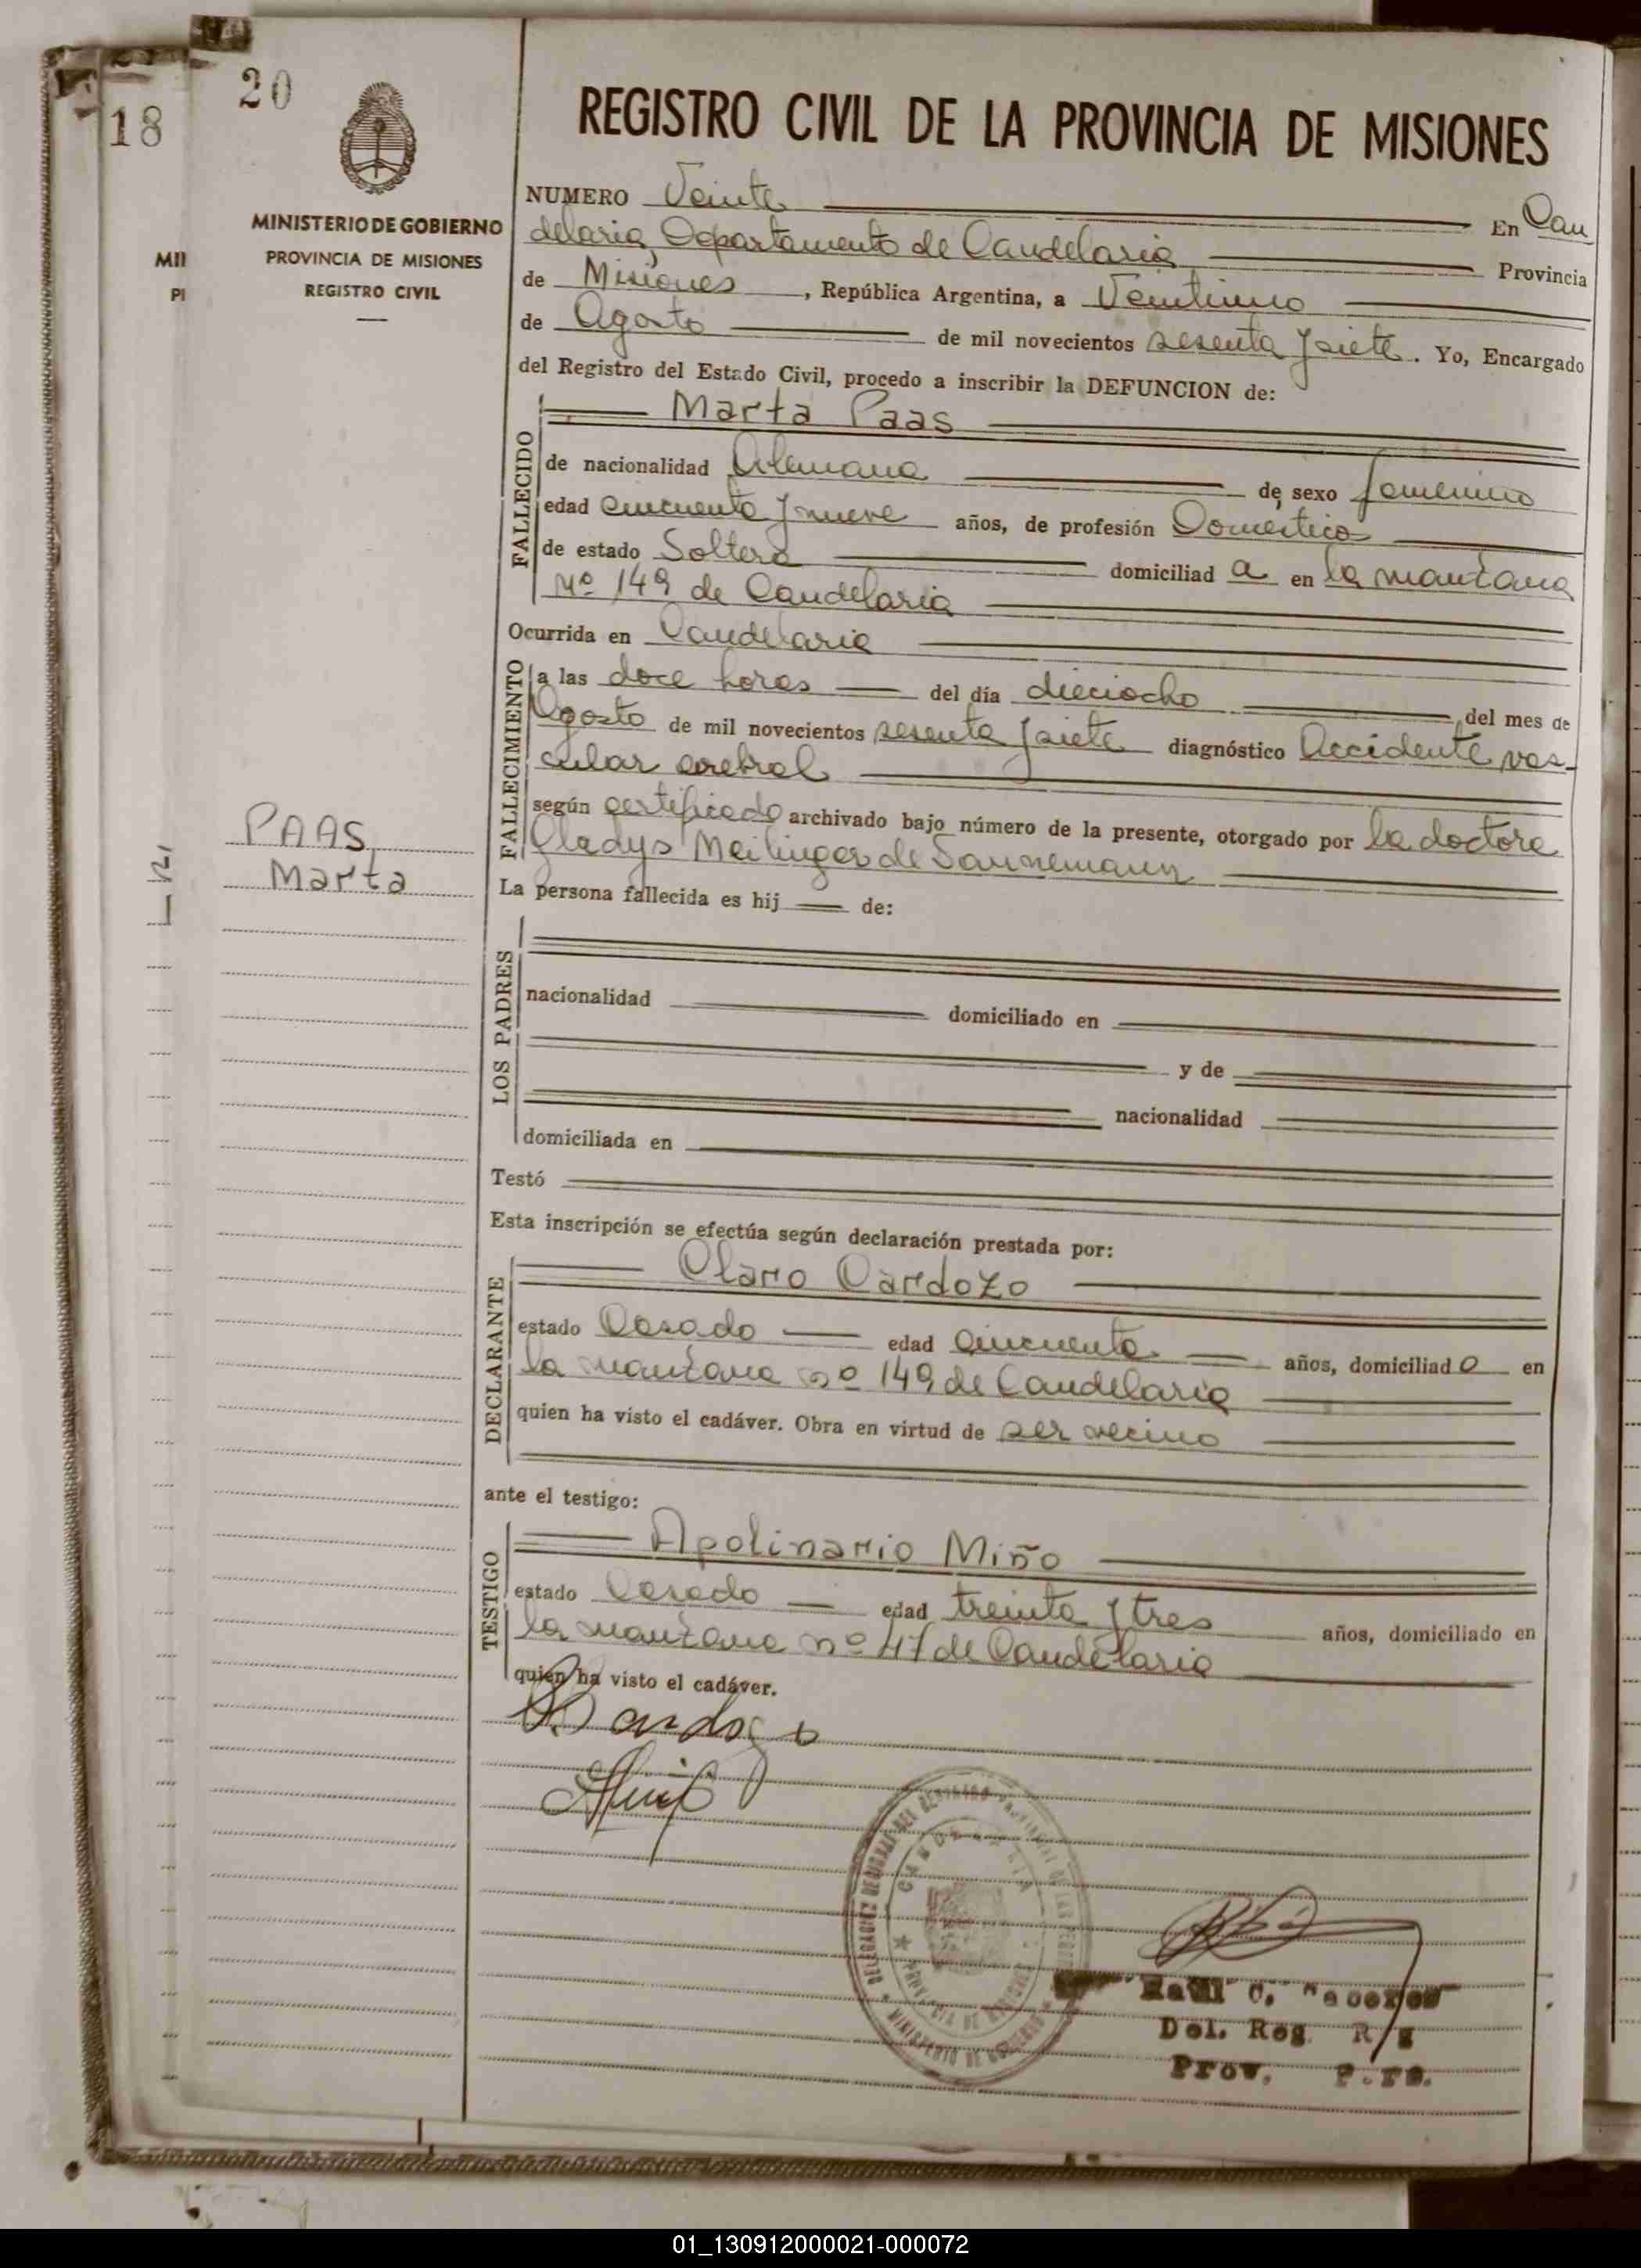 20
18
MINISTERIO DE GOBIERNO
PROVINCIA DE MISIONES
REGISTRO CIVIL
MII
PI
PAAS
Marta
REGISTRO CIVIL DE LA PROVINCIA DE MISIONES
NUMERO Veinte En Can
delaria, Departamento de Candelaria Provincia
de Misiones, República Argentina, a Veintiuno
de Agosto de mil novecientos sesenta y siete. Yo, Encargado
del Registro del Estado Civil, procedo a inscribir la DEFUNCION de:
FALLECIDO
Marta Paas
de nacionalidad Alemana de sexo femenino
edad cincuenta y nueve años, de profesión Domestica
de estado Soltera domiciliad a en la manzana
Nº 149 de Candelaria
Ocurrida en Candelaria
FALLECIMIENTO
a las doce horas del día dieciocho del mes de
Agosto de mil novecientos sesenta y siete diagnóstico Accidente vas-
cular cerebral
según certificado archivado bajo número de la presente, otorgado por la doctora
Gladys Meilinger de Sannemann
La persona fallecida es hij de:
LOS PADRES
nacionalidad domiciliado en
y de
nacionalidad
domiciliada en
Testó
Esta inscripción se efectúa según declaración prestada por:
DECLARANTE
Claro Cardozo
estado Casado edad cincuenta años, domiciliad o en
la manzana nº 149 de Candelaria
quien ha visto el cadáver. Obra en virtud de ser vecino
ante el testigo:
TESTIGO
Apolinario Miño
estado Casado edad treinta y tres años, domiciliado en
la manzana nº 47 de Candelaria
quien ha visto el cadáver.
Cardozo
CANDELARIA
PROVINCIA DE MISIONES
MINISTERIO DE GOBIERNO
Raul C.
Del. Reg. R/g
Prov. P.
01_130912000021-000072